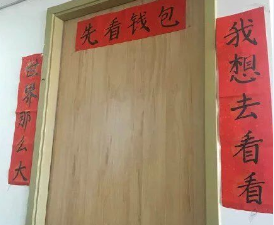 先看钱包
我想去看看
世界那么大